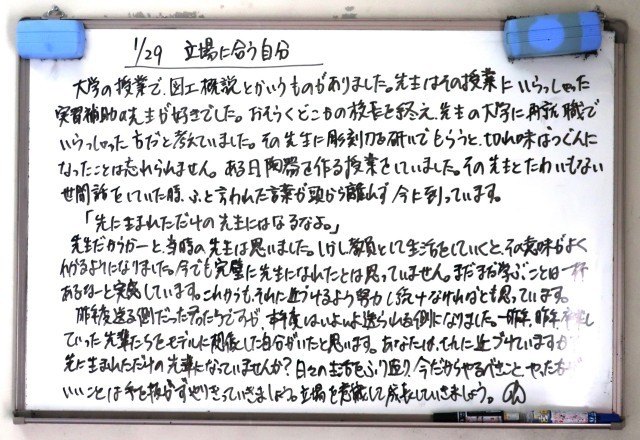 1/29 立場に合う自分
大学の授業で、図工概説とかいうものがありました。先生はその授業にいらっしゃった
実習補助の先生が好きでした。おそらくどこかの校長を終え、先生の大学に再就職で
いらっしゃった方だと考えていました。その先生に彫刻刀を研いでもらうと、切れ味ばつぐんに
なったことは忘れられません。ある日陶器を作る授業をしていました。その先生とたわいもない
世間話をしていた時、ふと言われた言葉が頭から離れず今に到っています。
「先に生まれただけの先生にはなるなよ。」
先生だからかーと、当時の先生は思いました。しかし、教員として生活をしていくと、その意味がよく
わかるようになりました。今でも完璧に先生になれたとは思っていません。まだまだ学ぶことは一杯
あるなーと実感しています。これからも、それに近づけるよう努力し続けなければとも思っています。
昨年度送る側だった君たちですが、本年度はいよいよ送られる側になりました。一昨年、昨年、卒業し
ていった先輩たちをモデルに想像した自分がいたと思います。あなたは、それに近づけていますか？
先に生まれただけの先輩になっていませんか？日々の生活をふり返り、今だからやるべきこと、やった方が
いいことは手を抜かずやりきっていきましょう。立場を意識して成長していきましょう。